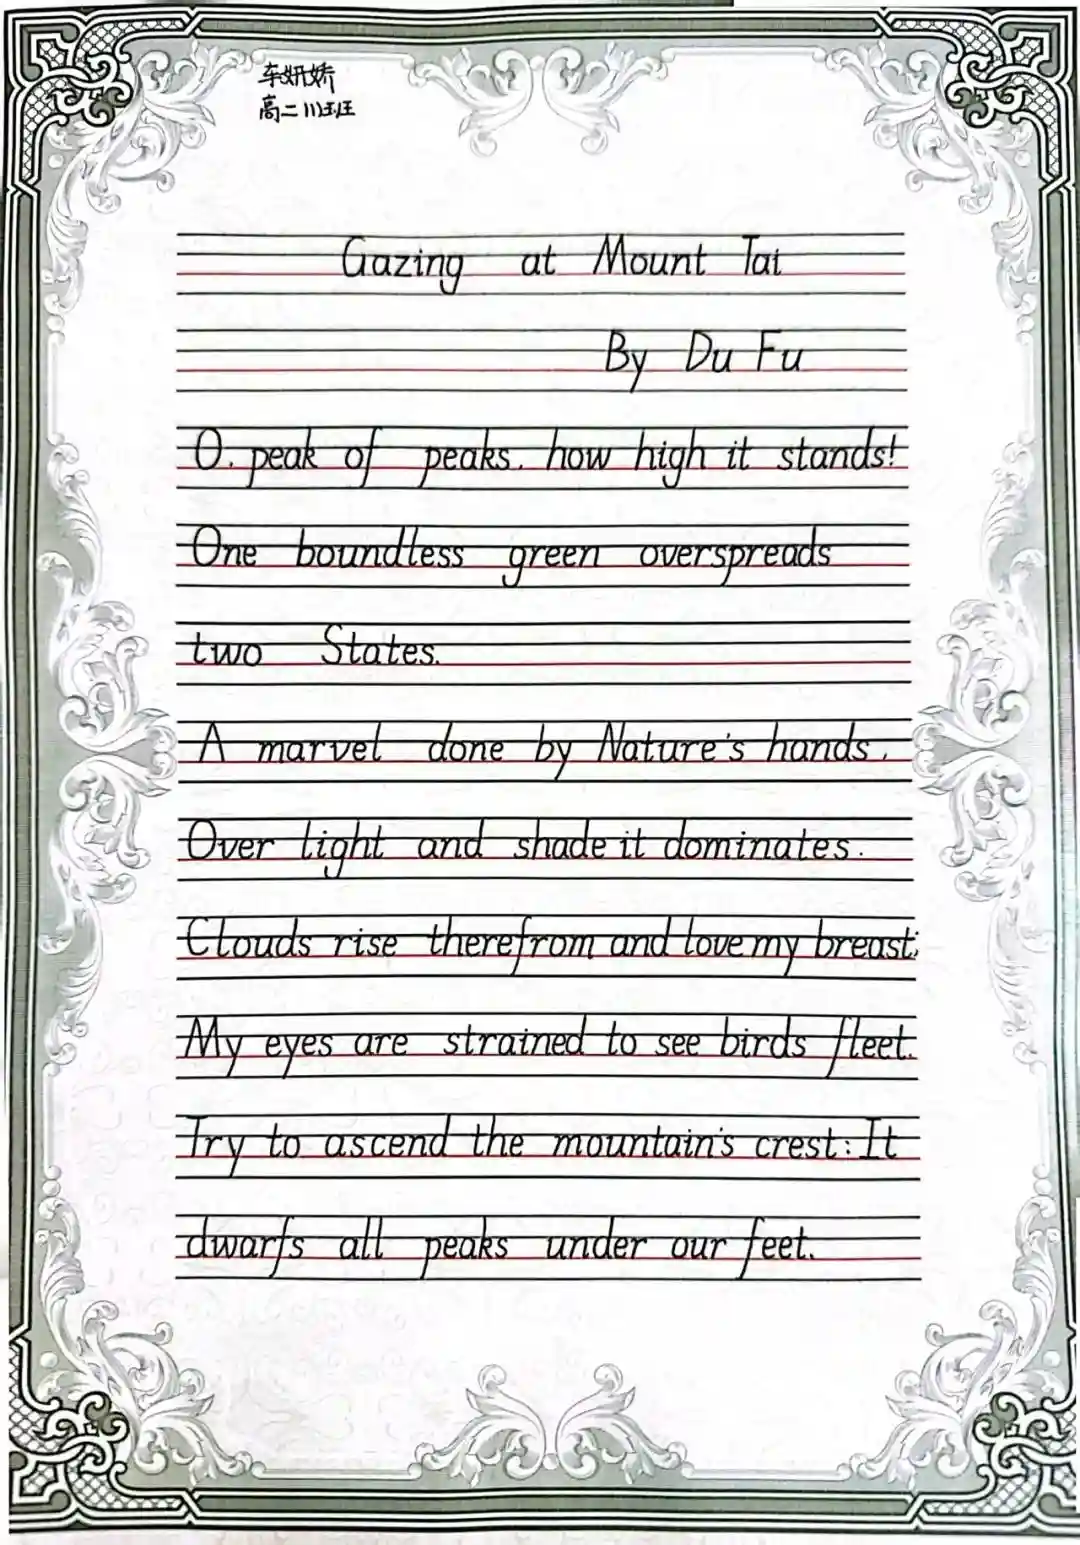 车妍娇
高二 11班
Gazing at Mount Tai
By Du Fu
O. peak of peaks. how high it stands!
One boundless green overspreads
two States.
A marvel done by Nature's hands.
Over light and shade it dominates.
Clouds rise therefrom and love my breast;
My eyes are strained to see birds fleet.
Try to ascend the mountain's crest: It
dwarfs all peaks under our feet.